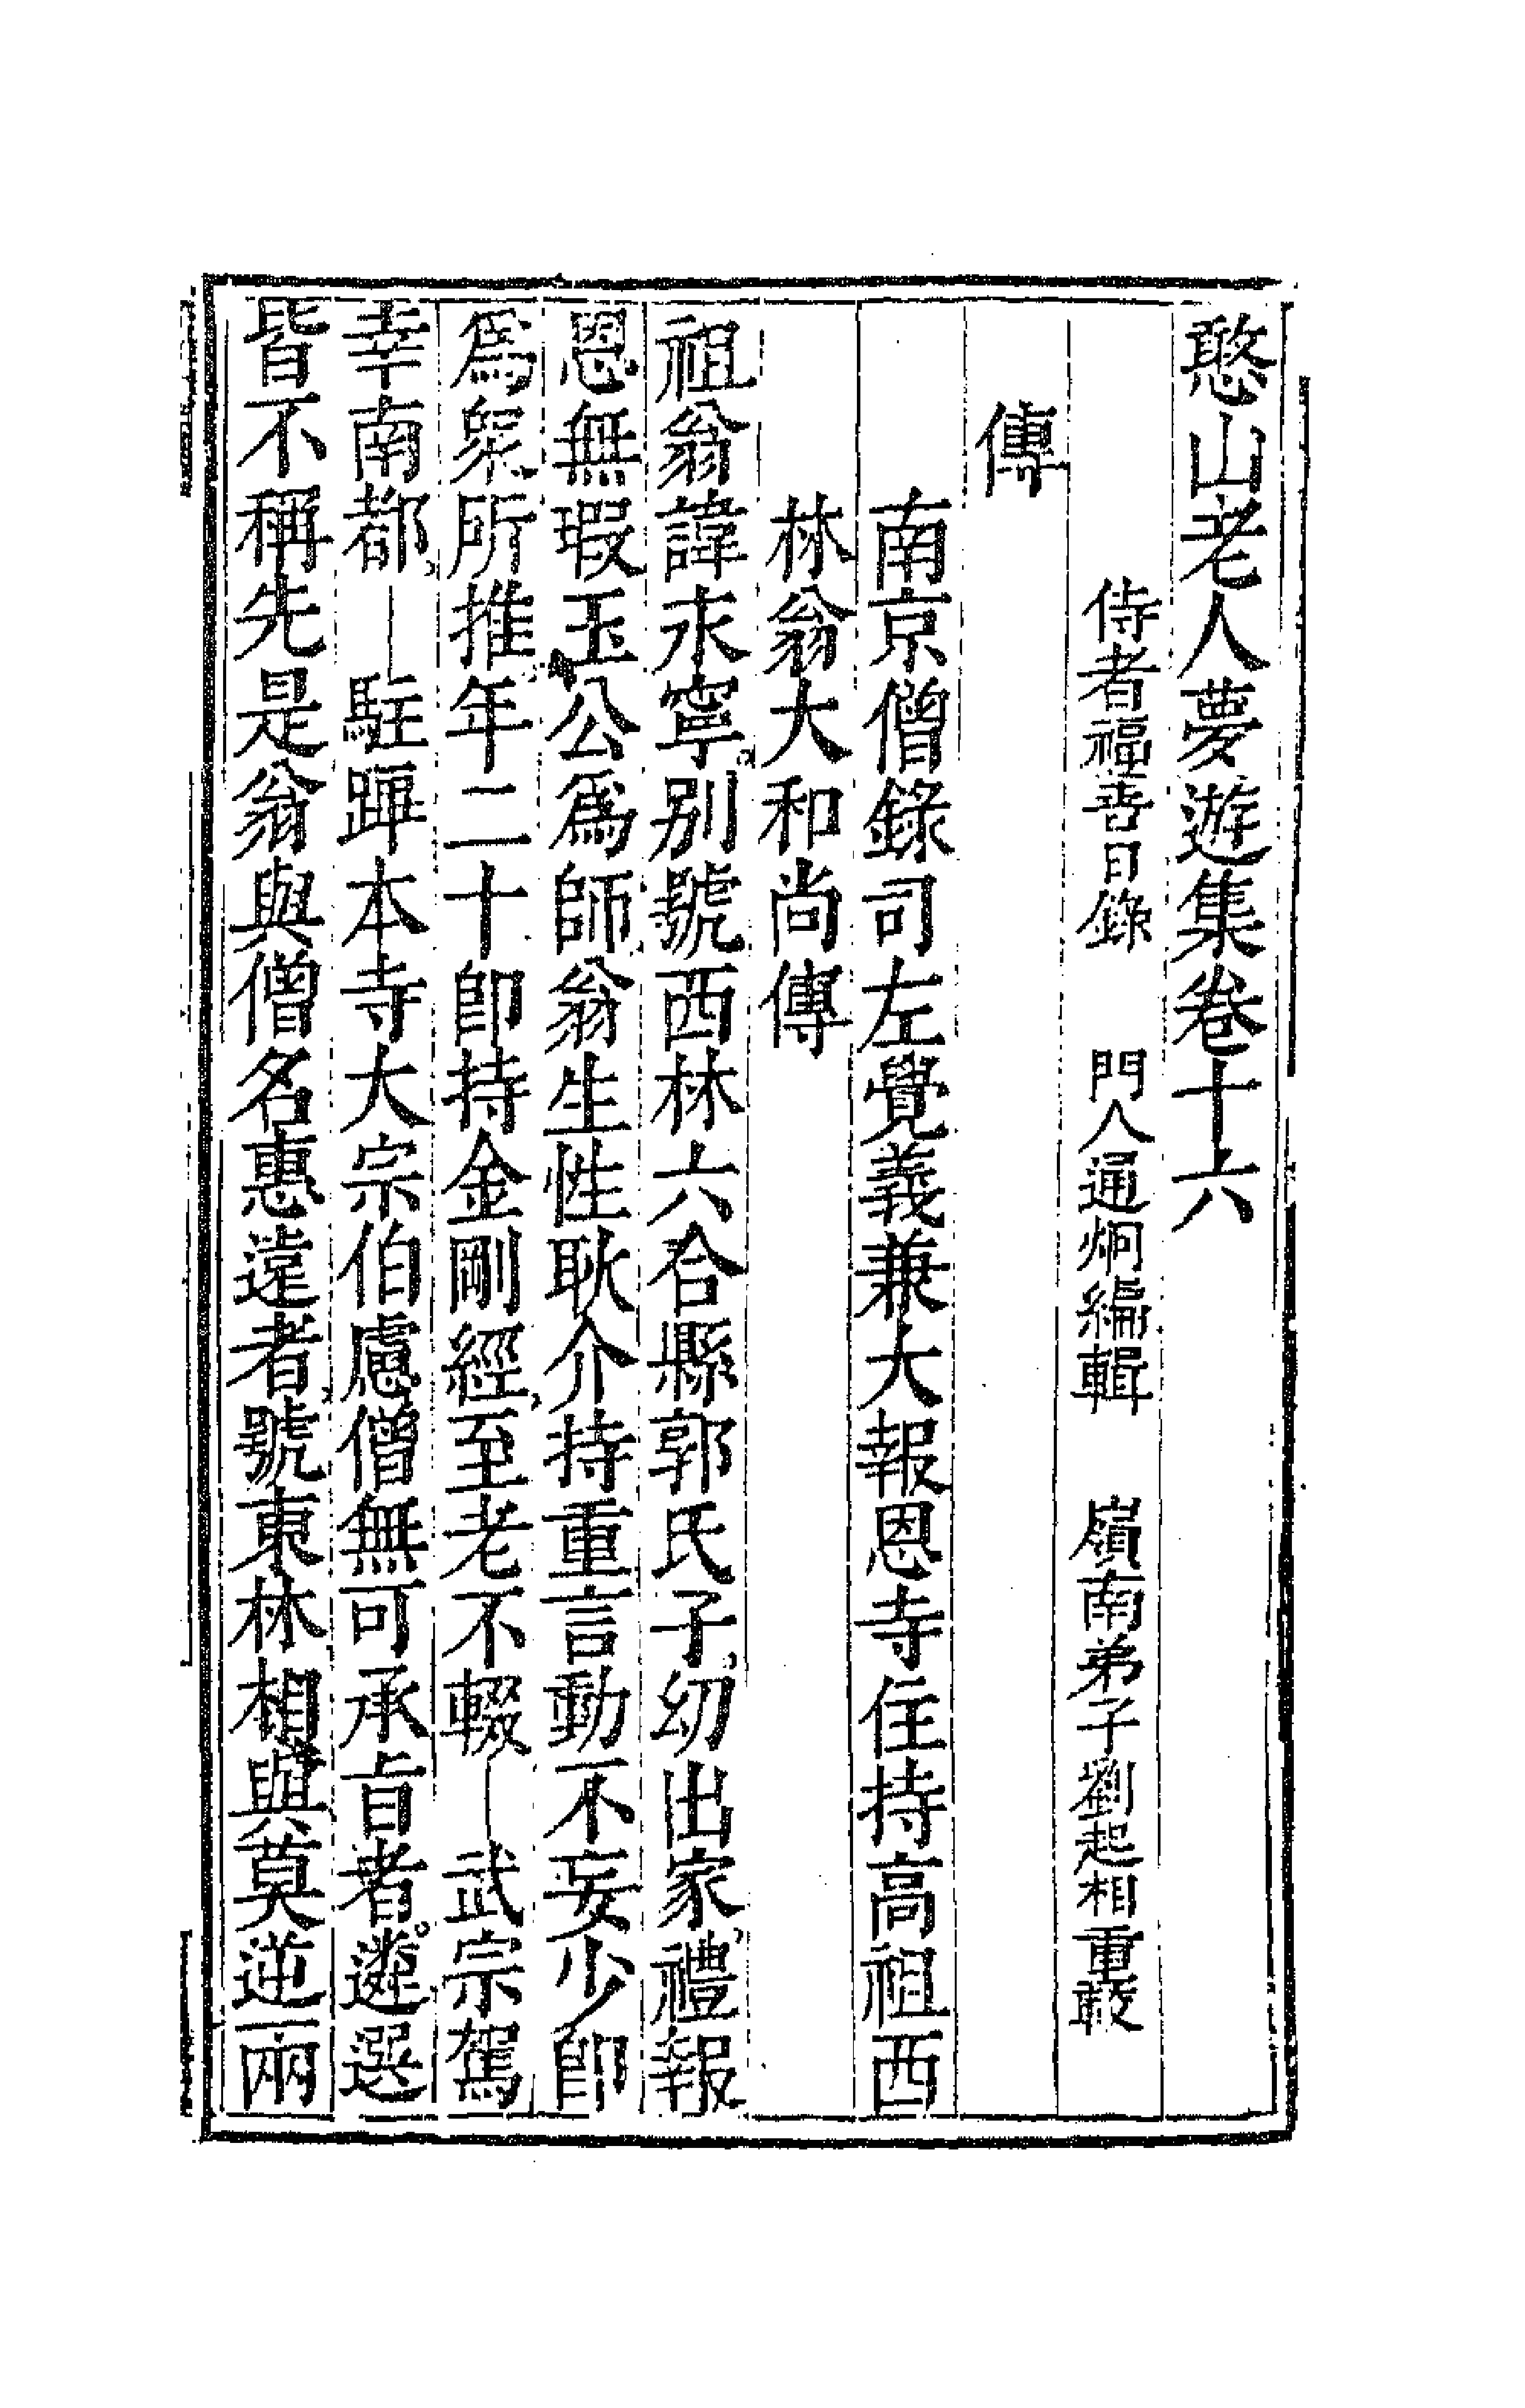 憨山老人夢遊集卷十六
侍者福善日錄　門人通炯編輯　嶺南弟子劉起相重較
傳
南京僧錄司左覺義兼大報恩寺住持高祖西
林翁大和尚傳
祖翁諱永寧。別號西林六合縣郭氏子。幼出家、禮報
恩無瑕玉公爲師。翁生性耿介持重言動不妄少即
爲衆所推年二十即持金剛經、至老不輟　武宗駕
幸南都、　駐蹕本寺大宗伯慮僧無可承旨者。遴選
皆不稱先是翁與僧名惠遠者、號東林相與莫逆兩